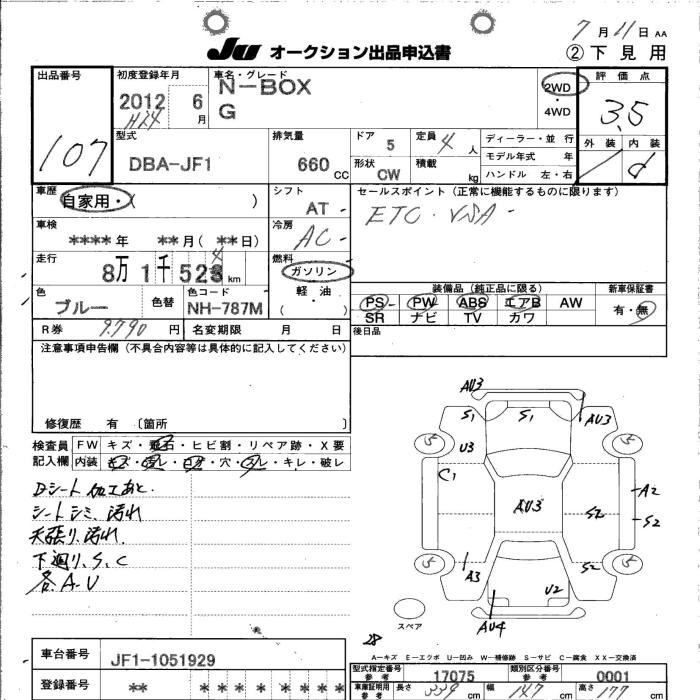 7月11日 AA
JU オークション出品申込書
②下見用
出品番号
107
初度登録年月
2012 6月
H24
車名・グレード
N-BOX
G
2WD
・
4WD
評価点
3.5
外装 内装
型式
DBA-JF1
排気量
660 CC
ドア 5
定員 4人
形状 CW
積載 kg
ディーラー・並行
モデル年式 年
ハンドル 左・右
車歴
自家用・( )
シフト
AT -
セールスポイント (正常に機能するものに限ります)
ETC・VSA -
車検
****年 **月( **日)
冷房
AC -
走行
8万1千523km
4
燃料
ガソリン
軽・油
( )
色
ブルー
色替
色コード
NH-787M
装備品 (純正品に限る)
新車保証書
PS PW ABS エアB AW
SR ナビ TV カワ
有・無
R券 9790円
名変期限 月 日
後日品
注意事項申告欄 (不具合内容等は具体的に記入してください)
修復歴 有 〔箇所 〕
検査員
記入欄
FW キズ・飛石・ヒビ割・リペア跡・X要
内装 キズ・汚レ・コゲ・穴・スレ・キレ・破レ
Dシート加工あと.
シートシミ、汚れ
天張り、汚れ.
下廻り、S、C
各A-U
AU3
S1
S1
AU3
U3
C1
AU3
A2
S2
S2
A3
S2
U2
AU4
スペア
28
A―キズ E―エクボ U―凹み W―補修跡 S―サビ C―腐食 XX―交換済
車台番号
JF1-1051929
型式指定番号
参考
17075
類別区分番号
参考
0001
登録番号
** * * * * * * *
車庫証明用
参考
長さ 339 cm
幅 147 cm
高さ 177 cm